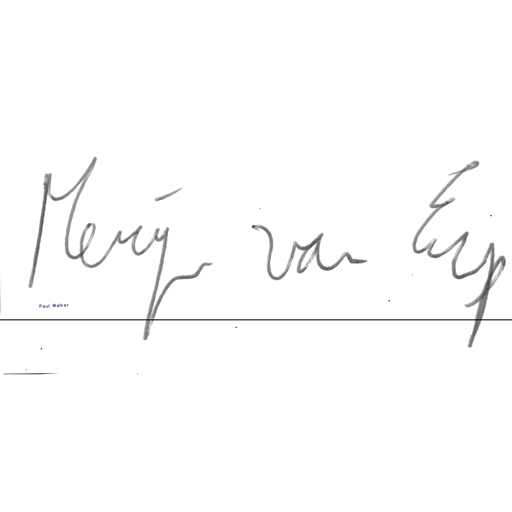 Merijn van Erp
Paul Walker